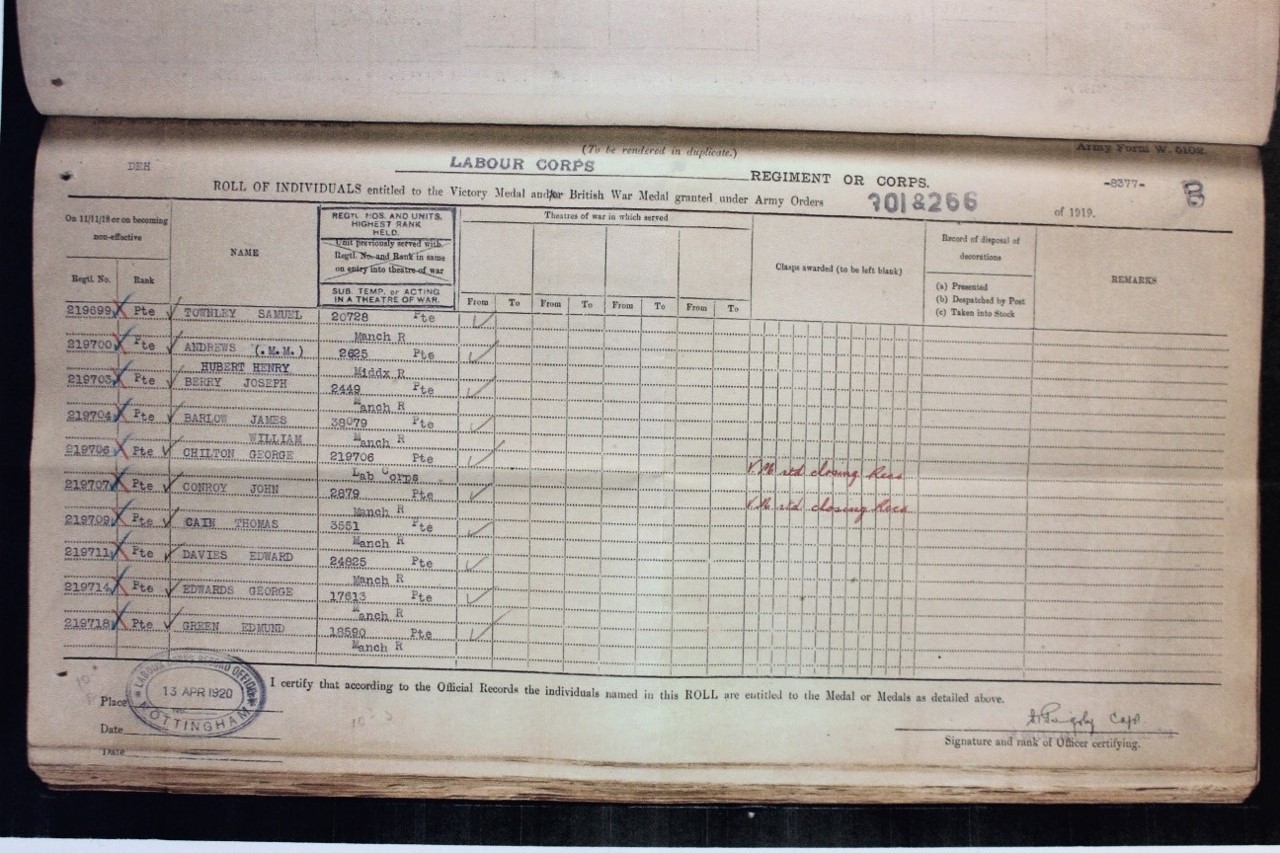 (To be rendered in duplicate.)
Army Form W. 5102.
DEH
LABOUR CORPS REGIMENT OR CORPS.
-8377-
B
ROLL OF INDIVIDUALS entitled to the Victory Medal and/or British War Medal granted under Army Orders 301 & 266 of 1919.
On 11/11/18 or on becoming non-effective
Regtl. No.
Rank
NAME
REGTL NOS. AND UNITS.
HIGHEST RANK
HELD.
Unit previously served with.
Regtl. No. and Rank in same
on entry into theatre of war
SUB. TEMP. or ACTING
IN A THEATRE OF WAR.
Theatres of war in which served
From To From To From To From To
Clasps awarded (to be left blank)
Record of disposal of decorations
(a) Presented
(b) Despatched by Post
(c) Taken into Stock
REMARKS
219699 Pte TOWNLEY SAMUEL 20728 Pte
Manch R
219700 Pte ANDREWS (.M.M.) 2625 Pte
HUBERT HENRY Middx R
219703 Pte BERRY JOSEPH 2449 Pte
Manch R
219704 Pte BARLOW JAMES 38079 Pte
WILLIAM Manch R
219706 Pte CHILTON GEORGE 219706 Pte
Lab Corps V.M. rtd closing Recs
219707 Pte CONROY JOHN 2879 Pte
Manch R V.M. rtd closing Recs
219709 Pte CAIN THOMAS 3551 Pte
Manch R
219711 Pte DAVIES EDWARD 24825 Pte
Manch R
219714 Pte EDWARDS GEORGE 17613 Pte
Manch R
219718 Pte GREEN EDMUND 18590 Pte
Manch R
LABOUR CORPS RECORD OFFICE
13 APR 1920
NOTTINGHAM
I certify that according to the Official Records the individuals named in this ROLL are entitled to the Medal or Medals as detailed above.
Place
Date
Capt
Signature and rank of Officer certifying.
Date